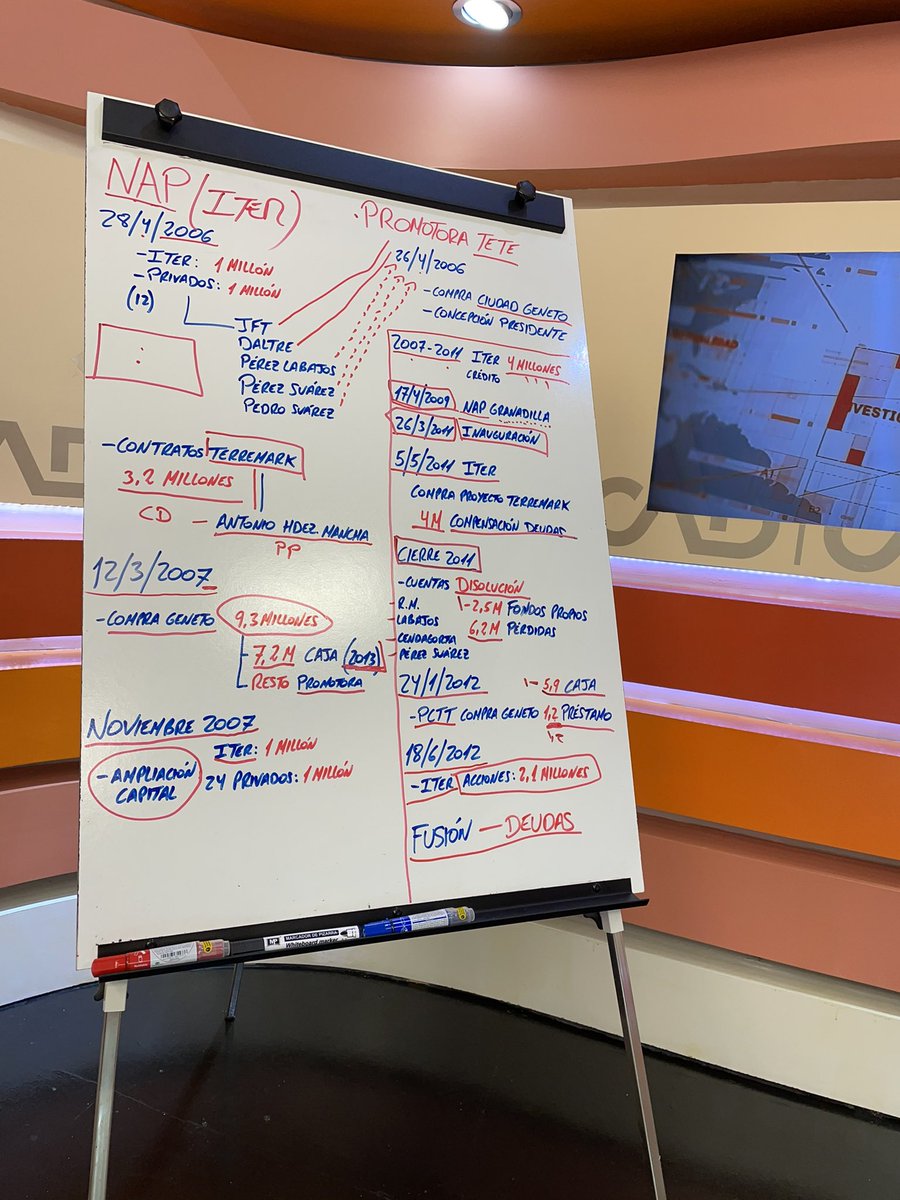 NAP (ITER)
28/4/2006
- ITER: 1 MILLÓN
- PRIVADOS: 1 MILLÓN
(12)
JFT
DALTRE
PÉREZ LABAJOS
PÉREZ SUÁREZ
PEDRO SUÁREZ
- CONTRATOS TERREMARK
3,2 MILLONES
CD - ANTONIO HDEZ. MANCHA
PP
12/3/2007
- COMPRA GENETO 9,3 MILLONES
7,2 M CAJA (2013)
RESTO PROMOTORA
NOVIEMBRE 2007
- AMPLIACIÓN CAPITAL
ITER: 1 MILLÓN
24 PRIVADOS: 1 MILLÓN
PROMOTORA TETE
26/4/2006
- COMPRA CIUDAD GENETO
- CONCEPCIÓN PRESIDENTE
2007-2011 ITER 4 MILLONES
CRÉDITO
17/4/2009 NAP GRANADILLA
26/3/2011 INAUGURACIÓN
5/5/2011 ITER
COMPRA PROYECTO TERREMARK
4M COMPENSACIÓN DEUDAS
CIERRE 2011
- CUENTAS DISOLUCIÓN
- R.M. -2,5M FONDOS PROPIOS
LABAJOS 6,2M PÉRDIDAS
CENDAGORTA
- PÉREZ SUÁREZ
24/1/2012 - 5,9 CAJA
- PCTT COMPRA GENETO 1,2 PRÉSTAMO
18/6/2012
- ITER ACCIONES: 2,1 MILLONES
FUSIÓN - DEUDAS
MARCADOR DE PIZARRA
Whiteboard marker